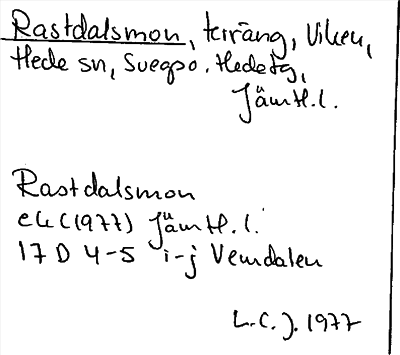 Rastdalsmon, terräng, Viken,
Hede sn, Svegpo. Hede tg,
Jämtl. l.
Rastdalsmon
ek (1977) Jämtl. l.
17 D 4-5 i-j Vemdalen
L.C.J. 1977